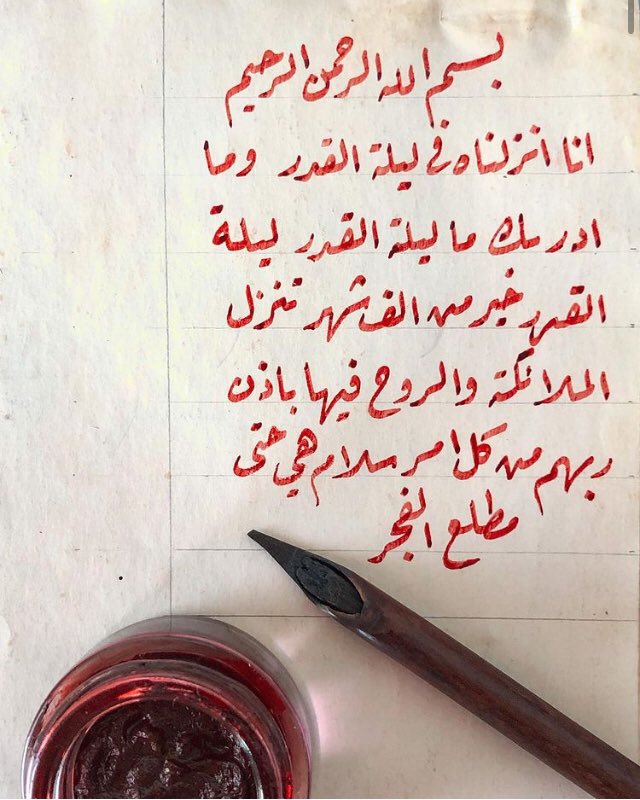 بسم الله الرحمن الرحيم
انا انزلناه في ليلة القدر وما
ادريك ما ليلة القدر ليلة
القدر خير من الف شهر تنزل
الملائكة والروح فيها باذن
ربهم من كل امر سلام هي حتى
مطلع الفجر